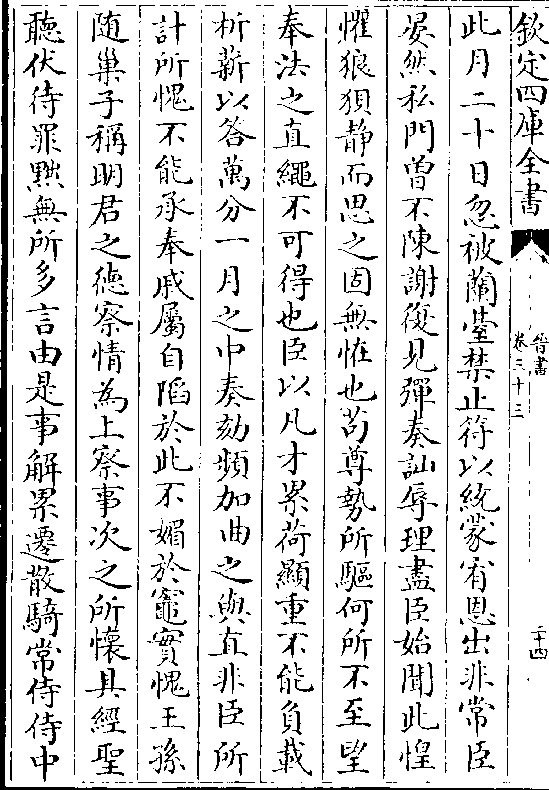 欽定四庫全書
晉書
卷三十三
二十四
此月二十日忽被蘭臺禁止符以統蒙宥恩出非常臣
晏然私門曽不陳謝復見彈奏訕辱理盡臣始聞此惶
懼狼狽静而思之固無恠也茍尊勢所驅何所不至望
奉法之直繩不可得也臣以凡才累荷顯重不能負載
析薪以答萬分一月之中奏劾頻加曲之與直非臣所
計所愧不能承奉戚屬自陷於此不媚於竈實愧王孫
随巢子稱明君之德察情為上察事次之所懷具經聖
聽伏待罪黜無所多言由是事解累遷散騎常侍侍中